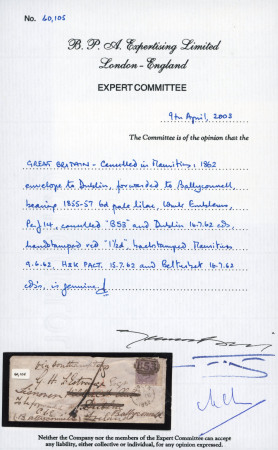 No. 60,105
B. P. A. Expertising Limited
London - England
EXPERT COMMITTEE
9th April, 2003
The Committee is of the opinion that the
GREAT BRITAIN - Cancelled in Mauritius, 1862
envelope to Dublin, forwarded to Ballyconnell,
bearing 1855-57 6d pale lilac, Wmk Emblems,
Perf 14, cancelled "B53" and Dublin 14.7.62 cds,
handstamped red "1½d", backstamped Mauritius
9.6.62, H&K PACT. 13.7.62 and Belturbet 14.7.62
cds's, is genuine
60,105
Neither the Company nor the members of the Expert Committee can accept
any liability, either collective or individual, for any opinion expressed.